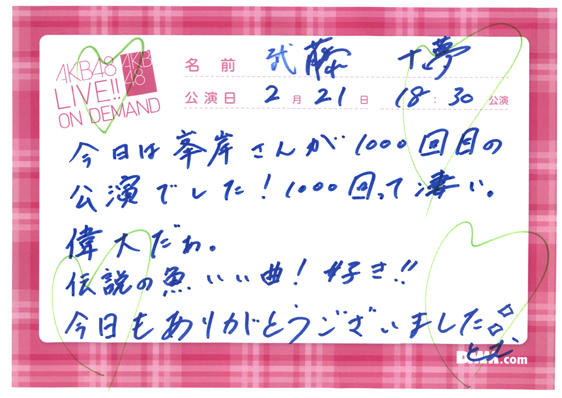 AKB48
LIVE!!
ON DEMAND
AKB
48
名前 武藤 十夢
公演日 2月21日 18:30公演
今日は峯岸さんが1000回目の
公演でした!1000回って凄い。
偉大だわ。
伝説の魚いい曲!好き!!
今日もありがとうございました
とむ
.com